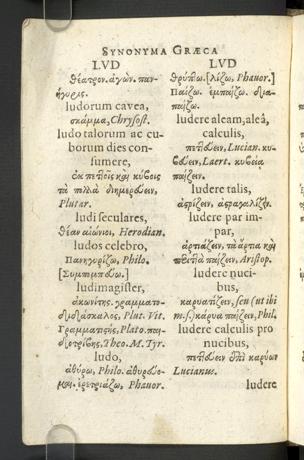 SYNONYMA GRÆCA
LVD
θέατρον. ἀγών. παν-
ήγυρις.
ludorum cavea,
σκάμμα, Chrysost.
ludo talorum ac cu-
borum dies con-
sumere,
ἐν πεττοῖς καὶ κύβοις
τὰ πολλὰ διημερεύειν,
Plutar.
ludi seculares,
θέαι αἰώνιοι, Herodian.
ludos celebro,
Πανηγυρίζω, Philo.
ludimagister,
γραμματο-
διδάσκαλος, Plut. Vit.
Γραμματιστής, Plato. παι-
δοτρίβης, Theo. M. Tyr.
ludo,
ἀθύρω, Philo.
Phavor.
LVD
Phavor.]
Παίζω. ἐμπαίζω. δια-
παίζω.
ludere aleam, aleâ,
calculis,
πεττεύειν, Lucian. κυ-
βεύειν, Laert. κυβεία
παίζειν.
ludere talis,
ἀστρίζειν, ἀστραγαλίζειν.
ludere par im-
par,
ἀρτιάζειν,
παίζειν, Aristop.
ludere nuci-
bus,
καρυατίζειν, seu (ut ibi
m. s.) κάρυα παίζειν, Phil.
ludere calculis pro
nucibus,
πεττεύειν ἐπὶ καρύων
Lucianus.
ludere